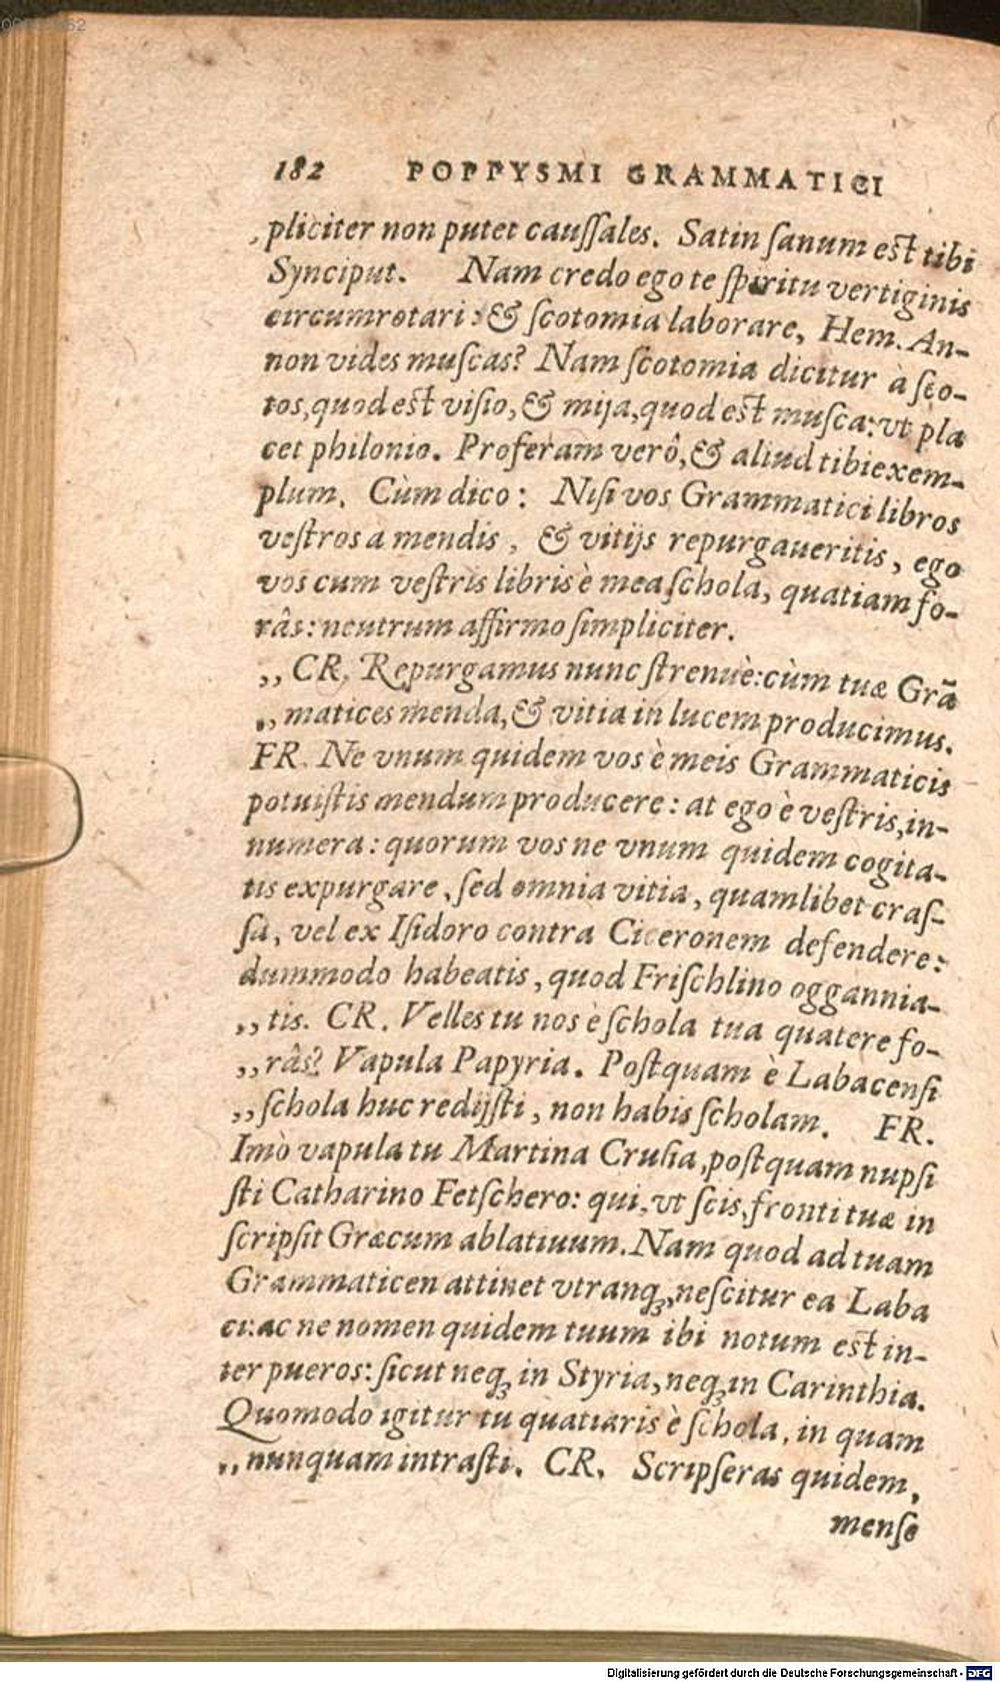 182 POPPYSMI GRAMMATICI
pliciter non putet cauſſales. Satin ſanum eſt tibi
Synciput. Nam credo ego te ſpiritu vertiginis
circumrotari: & ſcotomia laborare, Hem. An-
non vides muſcas? Nam ſcotomia dicitur à ſco-
tos, quod eſt viſio, & mija, quod eſt muſca: vt pla
cet philonio. Proferam verô, & aliud tibi exem-
plum. Cùm dico: Niſi vos Grammatici libros
veſtros a mendis, & vitijs repurgaueritis, ego
vos cum veſtris libris è mea ſchola, quatiam fo-
râs: neutrum affirmo ſimpliciter.
,, CR. Repurgamus nunc ſtrenuè: cùm tuæ Grã
,, matices menda, & vitia in lucem producimus.
FR. Ne vnum quidem vos è meis Grammaticis
potuiſtis mendum producere: at ego è veſtris, in-
numera: quorum vos ne vnum quidem cogita-
tis expurgare, ſed omnia vitia, quamlibet craſ-
ſa, vel ex Iſidoro contra Ciceronem defendere:
dummodo habeatis, quod Friſchlino oggannia-
,, tis. CR. Velles tu nos è ſchola tua quatere fo-
,, râs? Vapula Papyria. Poſtquam è Labacenſi
,, ſchola huc redijſti, non habis ſcholam. FR.
Imò vapula tu Martina Cruſia, poſtquam nupſi
ſti Catharino Fetſchero: qui, vt ſcis, fronti tuæ in
ſcripſit Græcum ablatiuum. Nam quod ad tuam
Grammaticen attinet vtranq́ꝫ, neſcitur ea Laba
ci: ac ne nomen quidem tuum ibi notum eſt in-
ter pueros: ſicut neqꝫ in Styria, neqꝫ in Carinthia.
Quomodo igitur tu quatiaris è ſchola, in quam
,, nunquam intraſti. CR. Scripſeras quidem,
menſe
Digitalisierung gefördert durch die Deutsche Forschungsgemeinschaft - DFG